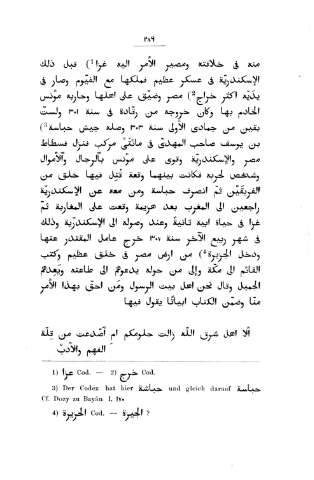 ٢٨٩
منه في خلافته ومصير الأمر اليه غزا¹) قبل ذلك
الإسكندريّة في عسكر عظيم فملكها مع الفيّوم وصار في
يديه اكثر خراج²) مصر وضيّق على اهلها وحاربه مونس
الخادم بها وكان خروجه من رقّادة في سنة ٣٠١ ولست
بقين من جمادى الأولى سنة ٣٠٣ وصله جيش حباسة³)
بن يوسف صاحب المهدىّ في مائتَىْ مركب فنزل فسطاط
مصر والإسكندريّة وقوى على مونس بالرجال والأموال
وشخص لحربه فكانت بينهما وقعة قُتِل فيها خلق من
الفريقَيْن ثم انصرف حباسة ومن معه عن الإسكندريّة
راجعين الى المغرب بعد هزيمة وقعت على المغاربة ثم
غزا في حياة ابيه ثانيةً وعند وصوله الى الإسكندريّة وذلك
في شهر ربيع الآخر سنة ٣٠٧ خرج عامل المقتدر عنها
ودخل الجزيرة⁴) من ارض مصر في خلق عظيم وكتب
القائم الى مكّة وإلى من حوله يدعوهم الى طاعته ويَعِدهم
الجميل وقال نحن اهل بيت الرسول ومَن احقّ بهذا الأمر
منّا وضمّن الكتاب ابياتًا يقول فيها
ألا اهل شرق اللّه زالت حلومكم ام آصّدعت من قِلّة
الفهم والأدبْ
1) عزا Cod. — 2) خرج Cod.
3) Der Codex hat hier حباشة und gleich darauf حباسة
Cf. Dozy zu Bayân I,
4) الحزيرة Cod. — الجيزة ?